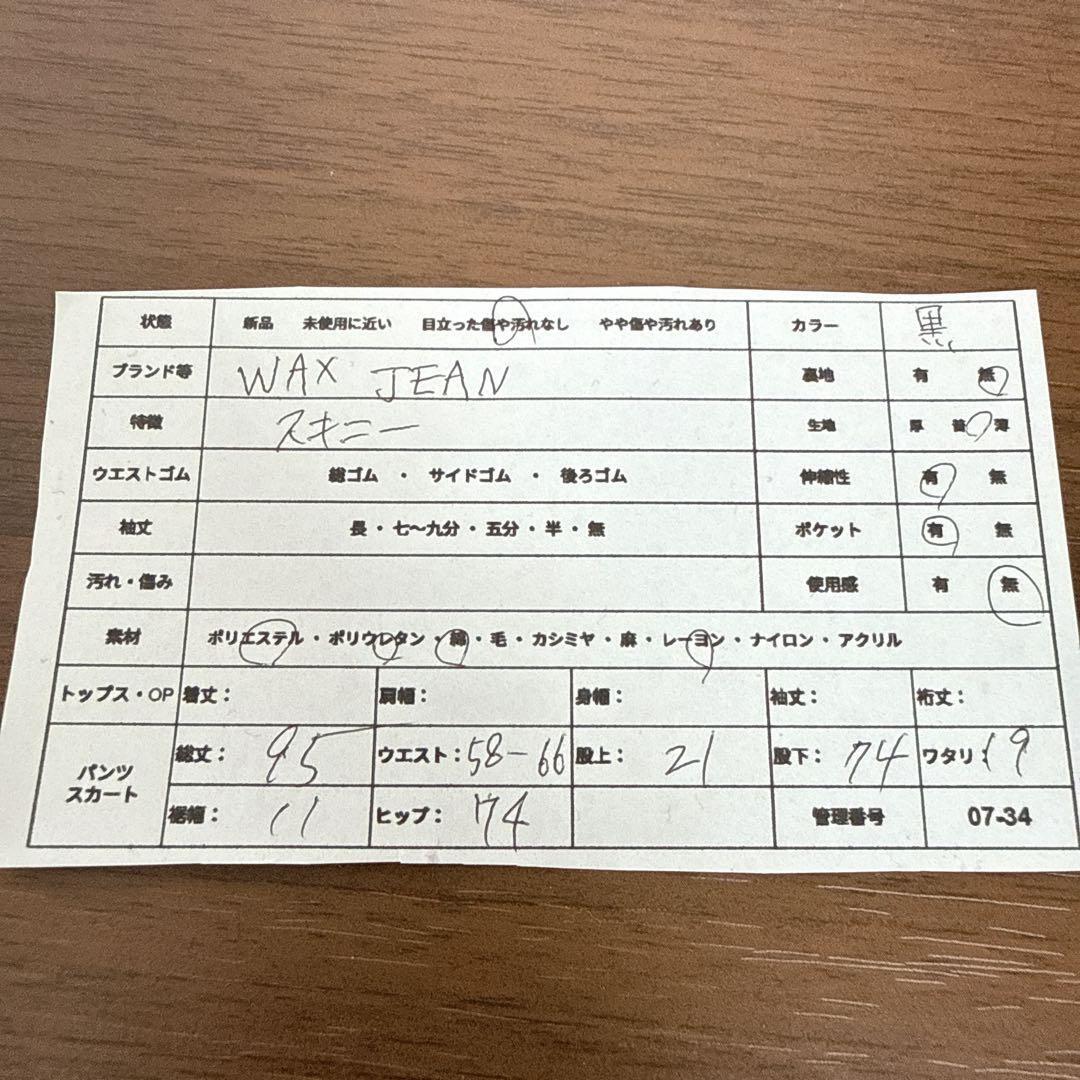 状態 新品 未使用に近い 目立った傷や汚れなし やや傷や汚れあり カラー 黒
ブランド等 WAX JEAN 裏地 有 無
特徴 スキニー 生地 厚 普 薄
ウエストゴム 総ゴム ・ サイドゴム ・ 後ろゴム 伸縮性 有 無
袖丈 長・七〜九分・五分・半・無 ポケット 有 無
汚れ・傷み 使用感 有 無
素材 ポリエステル・ポリウレタン・綿・毛・カシミヤ・麻・レーヨン・ナイロン・アクリル
トップス・OP 着丈: 肩幅: 身幅: 袖丈: 裄丈:
パンツ スカート 総丈: 95 ウエスト:58-66 股上: 21 股下: 74 ワタリ:19
裾幅: 11 ヒップ: 74 管理番号 07-34